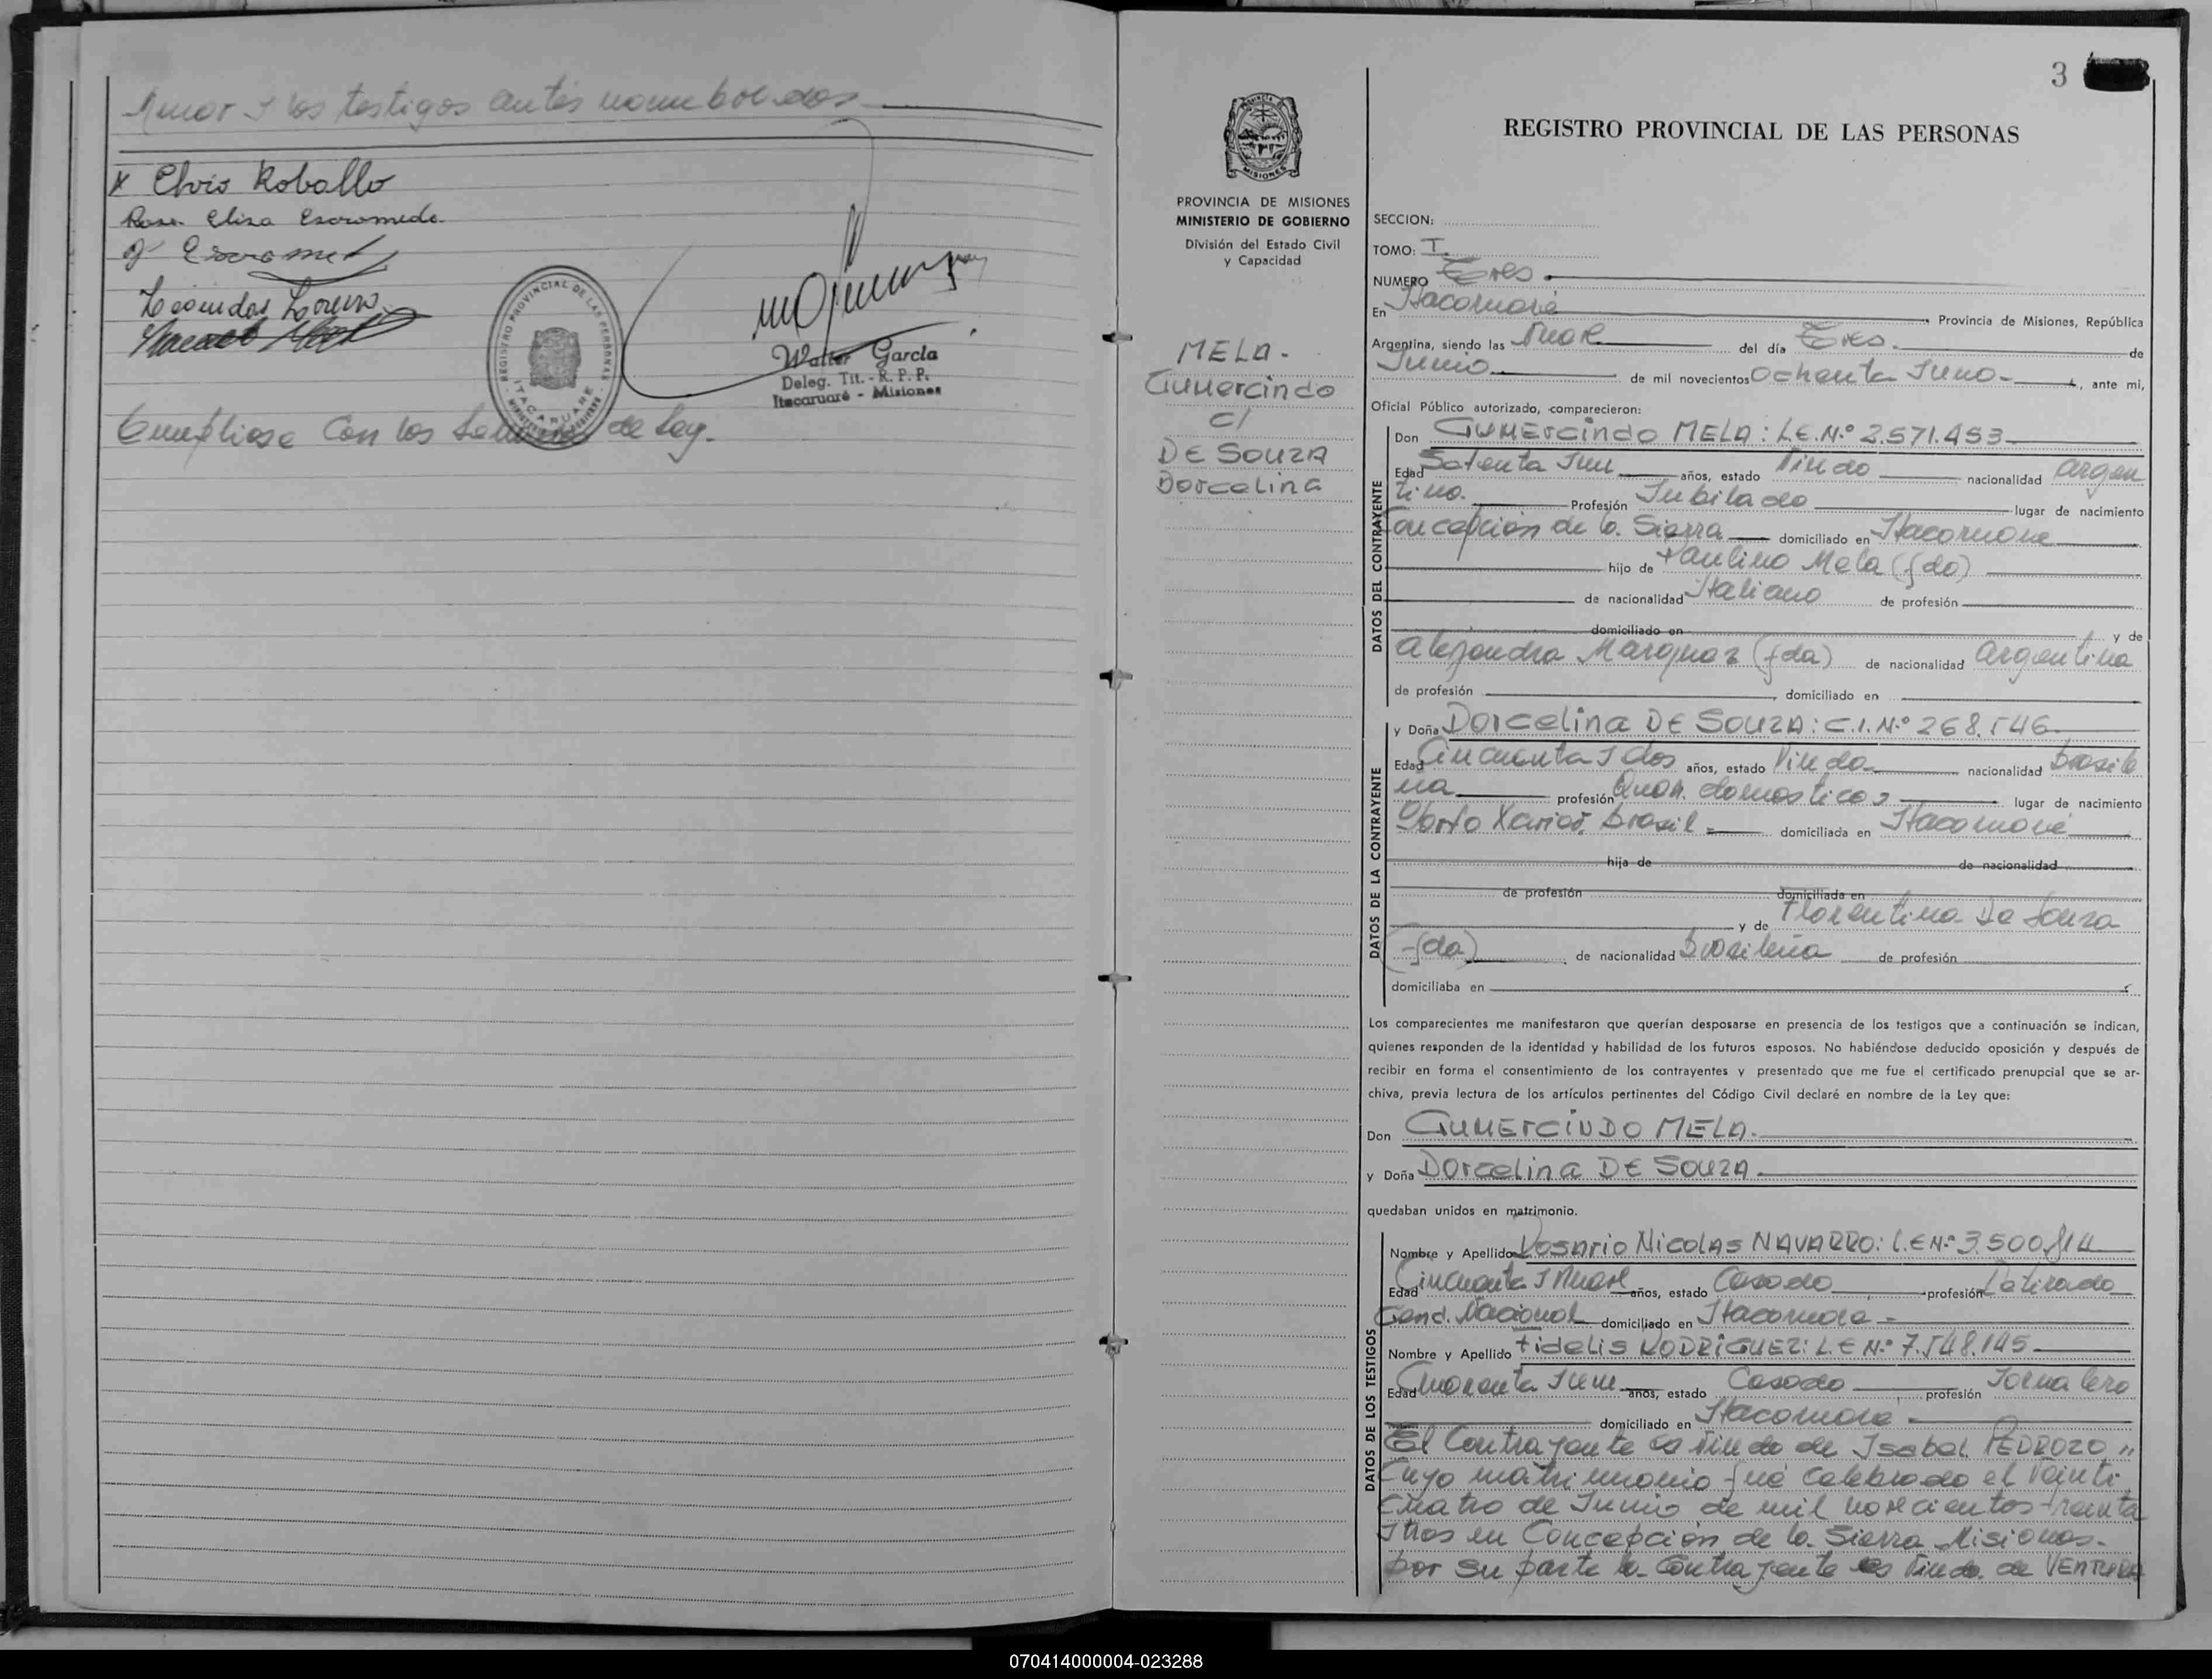 Amor y los testigos antes nombrados
x Elvio Roballo
Rosa Elisa Escromeda
Leonidas
REGISTRO PROVINCIAL DE LAS PERSONAS
ITACARUARE
Walter García
Deleg. Tit. - R. P. P.
Itacaruaré - Misiones
Cumpliose con los de Ley.
3
PROVINCIA DE MISIONES
MINISTERIO DE GOBIERNO
División del Estado Civil
y Capacidad
MELA-
Gumercindo
C/
DE SOUZA
Dorcelina
REGISTRO PROVINCIAL DE LAS PERSONAS
SECCION:
TOMO: I
NUMERO Tres
En Itacaruaré Provincia de Misiones, República
Argentina, siendo las Nueve del día Tres de
Junio de mil novecientos Ochenta y uno, ante mi,
Oficial Público autorizado, comparecieron:
DATOS DEL CONTRAYENTE
Don GUMErcindo MELA: L.E. N.º 2.571.453
Edad Setenta y un años, estado Viudo nacionalidad Argen
tino. Profesión Jubilado lugar de nacimiento
Concepción de la Sierra domiciliado en Itacaruaré
hijo de Paulino Mela (fdo)
de nacionalidad Italiano de profesión
domiciliado en y de
Alejandra Marquez (fda) de nacionalidad Argentina
de profesión , domiciliado en
DATOS DE LA CONTRAYENTE
y Doña Dorcelina DE SOUZA: C.I. N.º 268.546
Edad Cincuenta y dos años, estado Viuda nacionalidad Brasile
ña profesión Queh. domesticos lugar de nacimiento
Porto Xavier, Brasil domiciliada en Itacaruaré
hija de de nacionalidad
de profesión domiciliada en
y de Florentina De Souza
(fda) de nacionalidad Brasileña de profesión
domiciliaba en
Los comparecientes me manifestaron que querían desposarse en presencia de los testigos que a continuación se indican,
quienes responden de la identidad y habilidad de los futuros esposos. No habiéndose deducido oposición y después de
recibir en forma el consentimiento de los contrayentes y presentado que me fue el certificado prenupcial que se ar-
chiva, previa lectura de los artículos pertinentes del Código Civil declaré en nombre de la Ley que:
Don GUMERCINDO MELA.
y Doña Dorcelina DE SOUZA.
quedaban unidos en matrimonio.
DATOS DE LOS TESTIGOS
Nombre y Apellido Rosario Nicolas NAVARRO: L.E N.º 3.500.814
Edad Cincuenta y Nueve años, estado Casado profesión Retirado
Gend. Nacional domiciliado en Itacaruare
Nombre y Apellido Fidelis RODRIGUEZ: L.E N.º 7.548.145
Edad Cuarenta y un años, estado Casado profesión Jornalero
domiciliado en Itacaruare
El Contrayente es Viudo de Isabel PEDROZO
Cuyo matrimonio fué celebrado el Veinti
cuatro de Junio de mil novecientos treinta
y tres en Concepción de la Sierra Misiones-
por su parte la Contrayente es Viuda de VENTURA
070414000004-023288